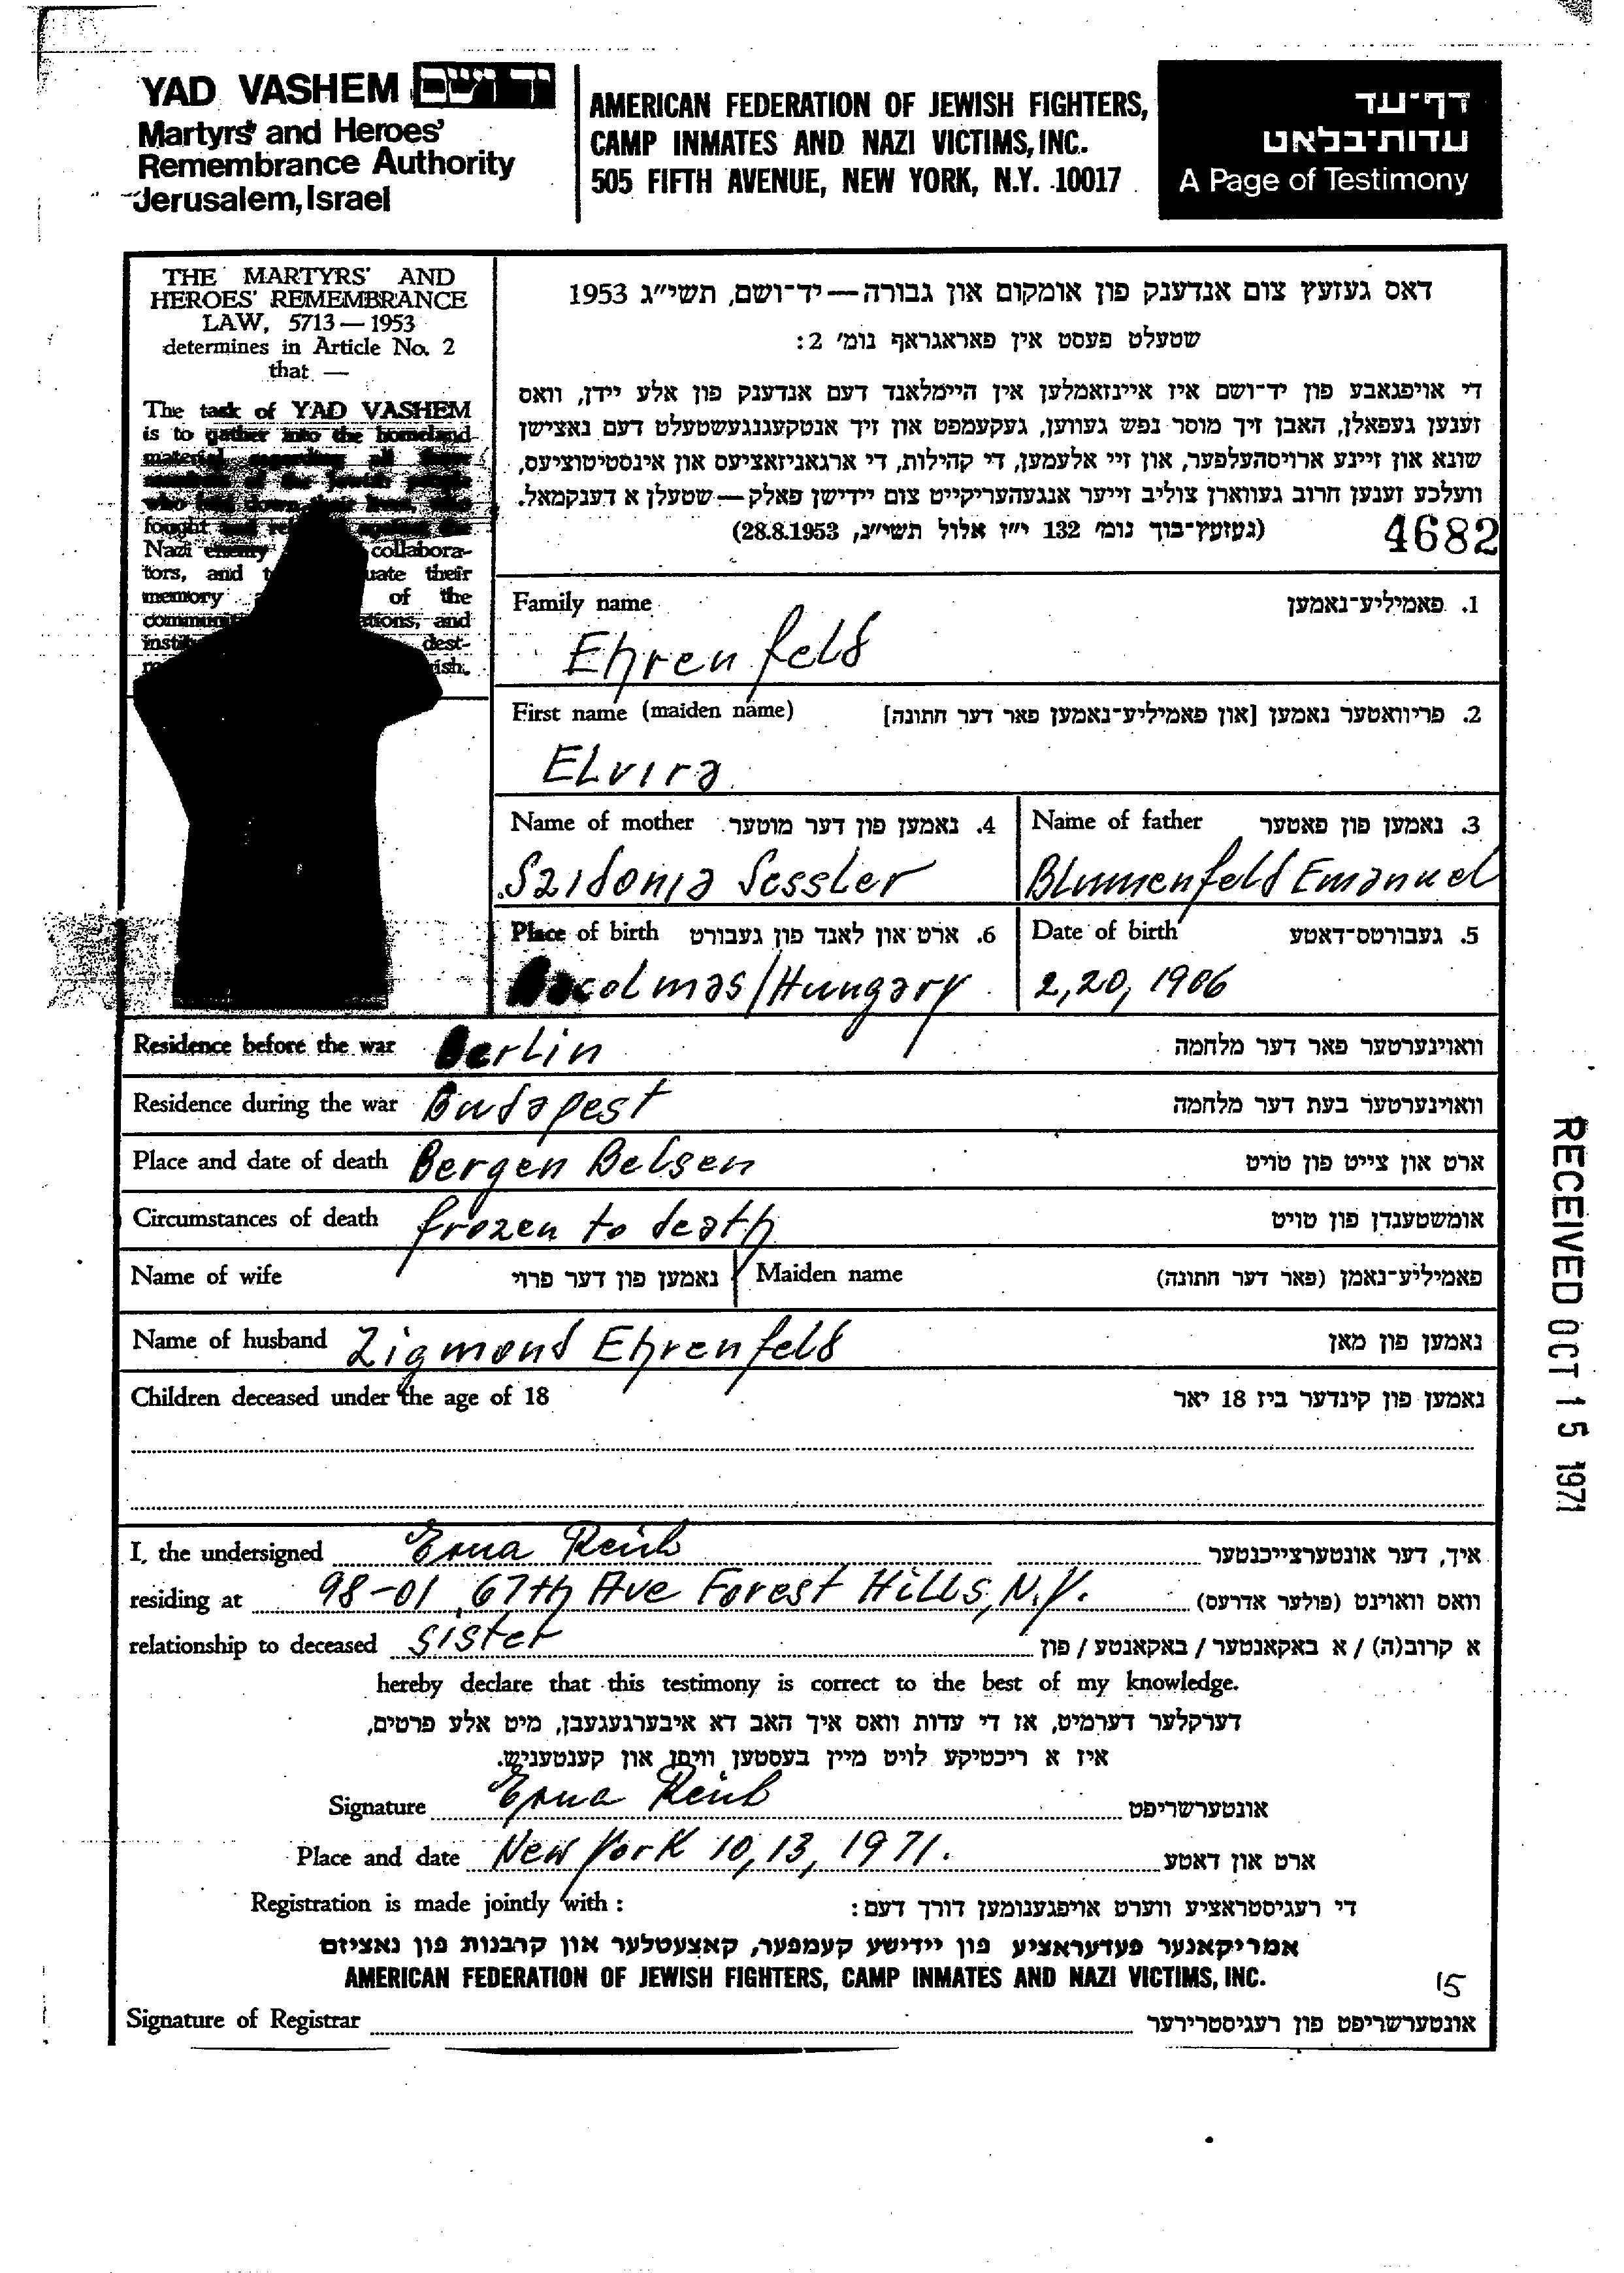 YAD VASHEM יד ושם
Martyrs' and Heroes'
Remembrance Authority
Jerusalem, Israel
AMERICAN FEDERATION OF JEWISH FIGHTERS,
CAMP INMATES AND NAZI VICTIMS, INC.
505 FIFTH AVENUE, NEW YORK, N.Y. 10017
דף-עד
עדות-בלאט
A Page of Testimony
THE MARTYRS' AND
HEROES' REMEMBRANCE
LAW, 5713—1953
determines in Article No. 2
that —
The task of YAD VASHEM
is to gather into the homeland
material regarding all those
members of the Jewish people
who laid down their lives, who
fought and rebelled against the
Nazi enemy collabora-
tors, and their
memory of the
and
dest-
דאס געזעץ צום אנדענק פון אומקום און גבורה—יד-ושם, תשי"ג 1953
שטעלט פעסט אין פאראגראף נומ' 2:
די אויפגאבע פון יד-ושם איז איינזאמלען אין היימלאנד דעם אנדענק פון אלע יידן, וואס
זענען געפאלן, האבן זיך מוסר נפש געווען, געקעמפט און זיך אנטקעגנגעשטעלט דעם נאצישן
שונא און זיינע ארויסהעלפער, און זיי אלעמען, די קהילות, די ארגאניזאציעס און אינסטיטוציעס,
וועלכע זענען חרוב געווארן צוליב זייער אנגעהעריקייט צום יידישן פאלק—שטעלן א דענקמאל.
(געזעץ-בוך נומ' 132 י"ז אלול תשי"ג, 28.8.1953)
4682
Family name 1. פאמיליע-נאמען
Ehrenfeld
First name (maiden name) 2. פריוואטער נאמען [און פאמיליע-נאמען פאר דער חתונה]
Elvira
Name of mother 4. נאמען פון דער מוטער
Szidonia Sessler
Name of father 3. נאמען פון פאטער
Blumenfeld Emanuel
Place of birth 6. ארט און לאנד פון געבורט
/Hungary
Date of birth 5. געבורטס-דאטע
2,20,1906
Residence before the war Berlin וואוינערטער פאר דער מלחמה
Residence during the war Budapest וואוינערטער בעת דער מלחמה
Place and date of death Bergen Belsen ארט און צייט פון טויט
Circumstances of death frozen to death אומשטענדן פון טויט
Name of wife נאמען פון דער פרוי Maiden name פאמיליע-נאמן (פאר דער חתונה)
Name of husband Zigmond Ehrenfeld נאמען פון מאן
Children deceased under the age of 18 נאמען פון קינדער ביז 18 יאר
I, the undersigned Erna Reich איך, דער אונטערצייכנטער
residing at 98-01, 67th Ave Forest Hills, N.Y. וואס וואוינט (פולער אדרעס)
relationship to deceased sister א קרוב(ה) / א באקאנטער / באקאנטע / פון
hereby declare that this testimony is correct to the best of my knowledge.
דערקלער דערמיט, אז די עדות וואס איך האב דא איבערגעגעבן, מיט אלע פרטים,
איז א ריכטיקע לויט מיין בעסטען וויסן און קענטעניש.
Signature Erna Reich אונטערשריפט
Place and date New York 10,13,1971. ארט און דאטע
Registration is made jointly with: די רעגיסטראציע ווערט אויפגענומען דורך דעם:
אמריקאנער פעדעראציע פון יידישע קעמפער, קאצעטלער און קרבנות פון נאציזם
AMERICAN FEDERATION OF JEWISH FIGHTERS, CAMP INMATES AND NAZI VICTIMS, INC.
15
Signature of Registrar אונטערשריפט פון רעגיסטרירער
RECEIVED OCT 15 1971